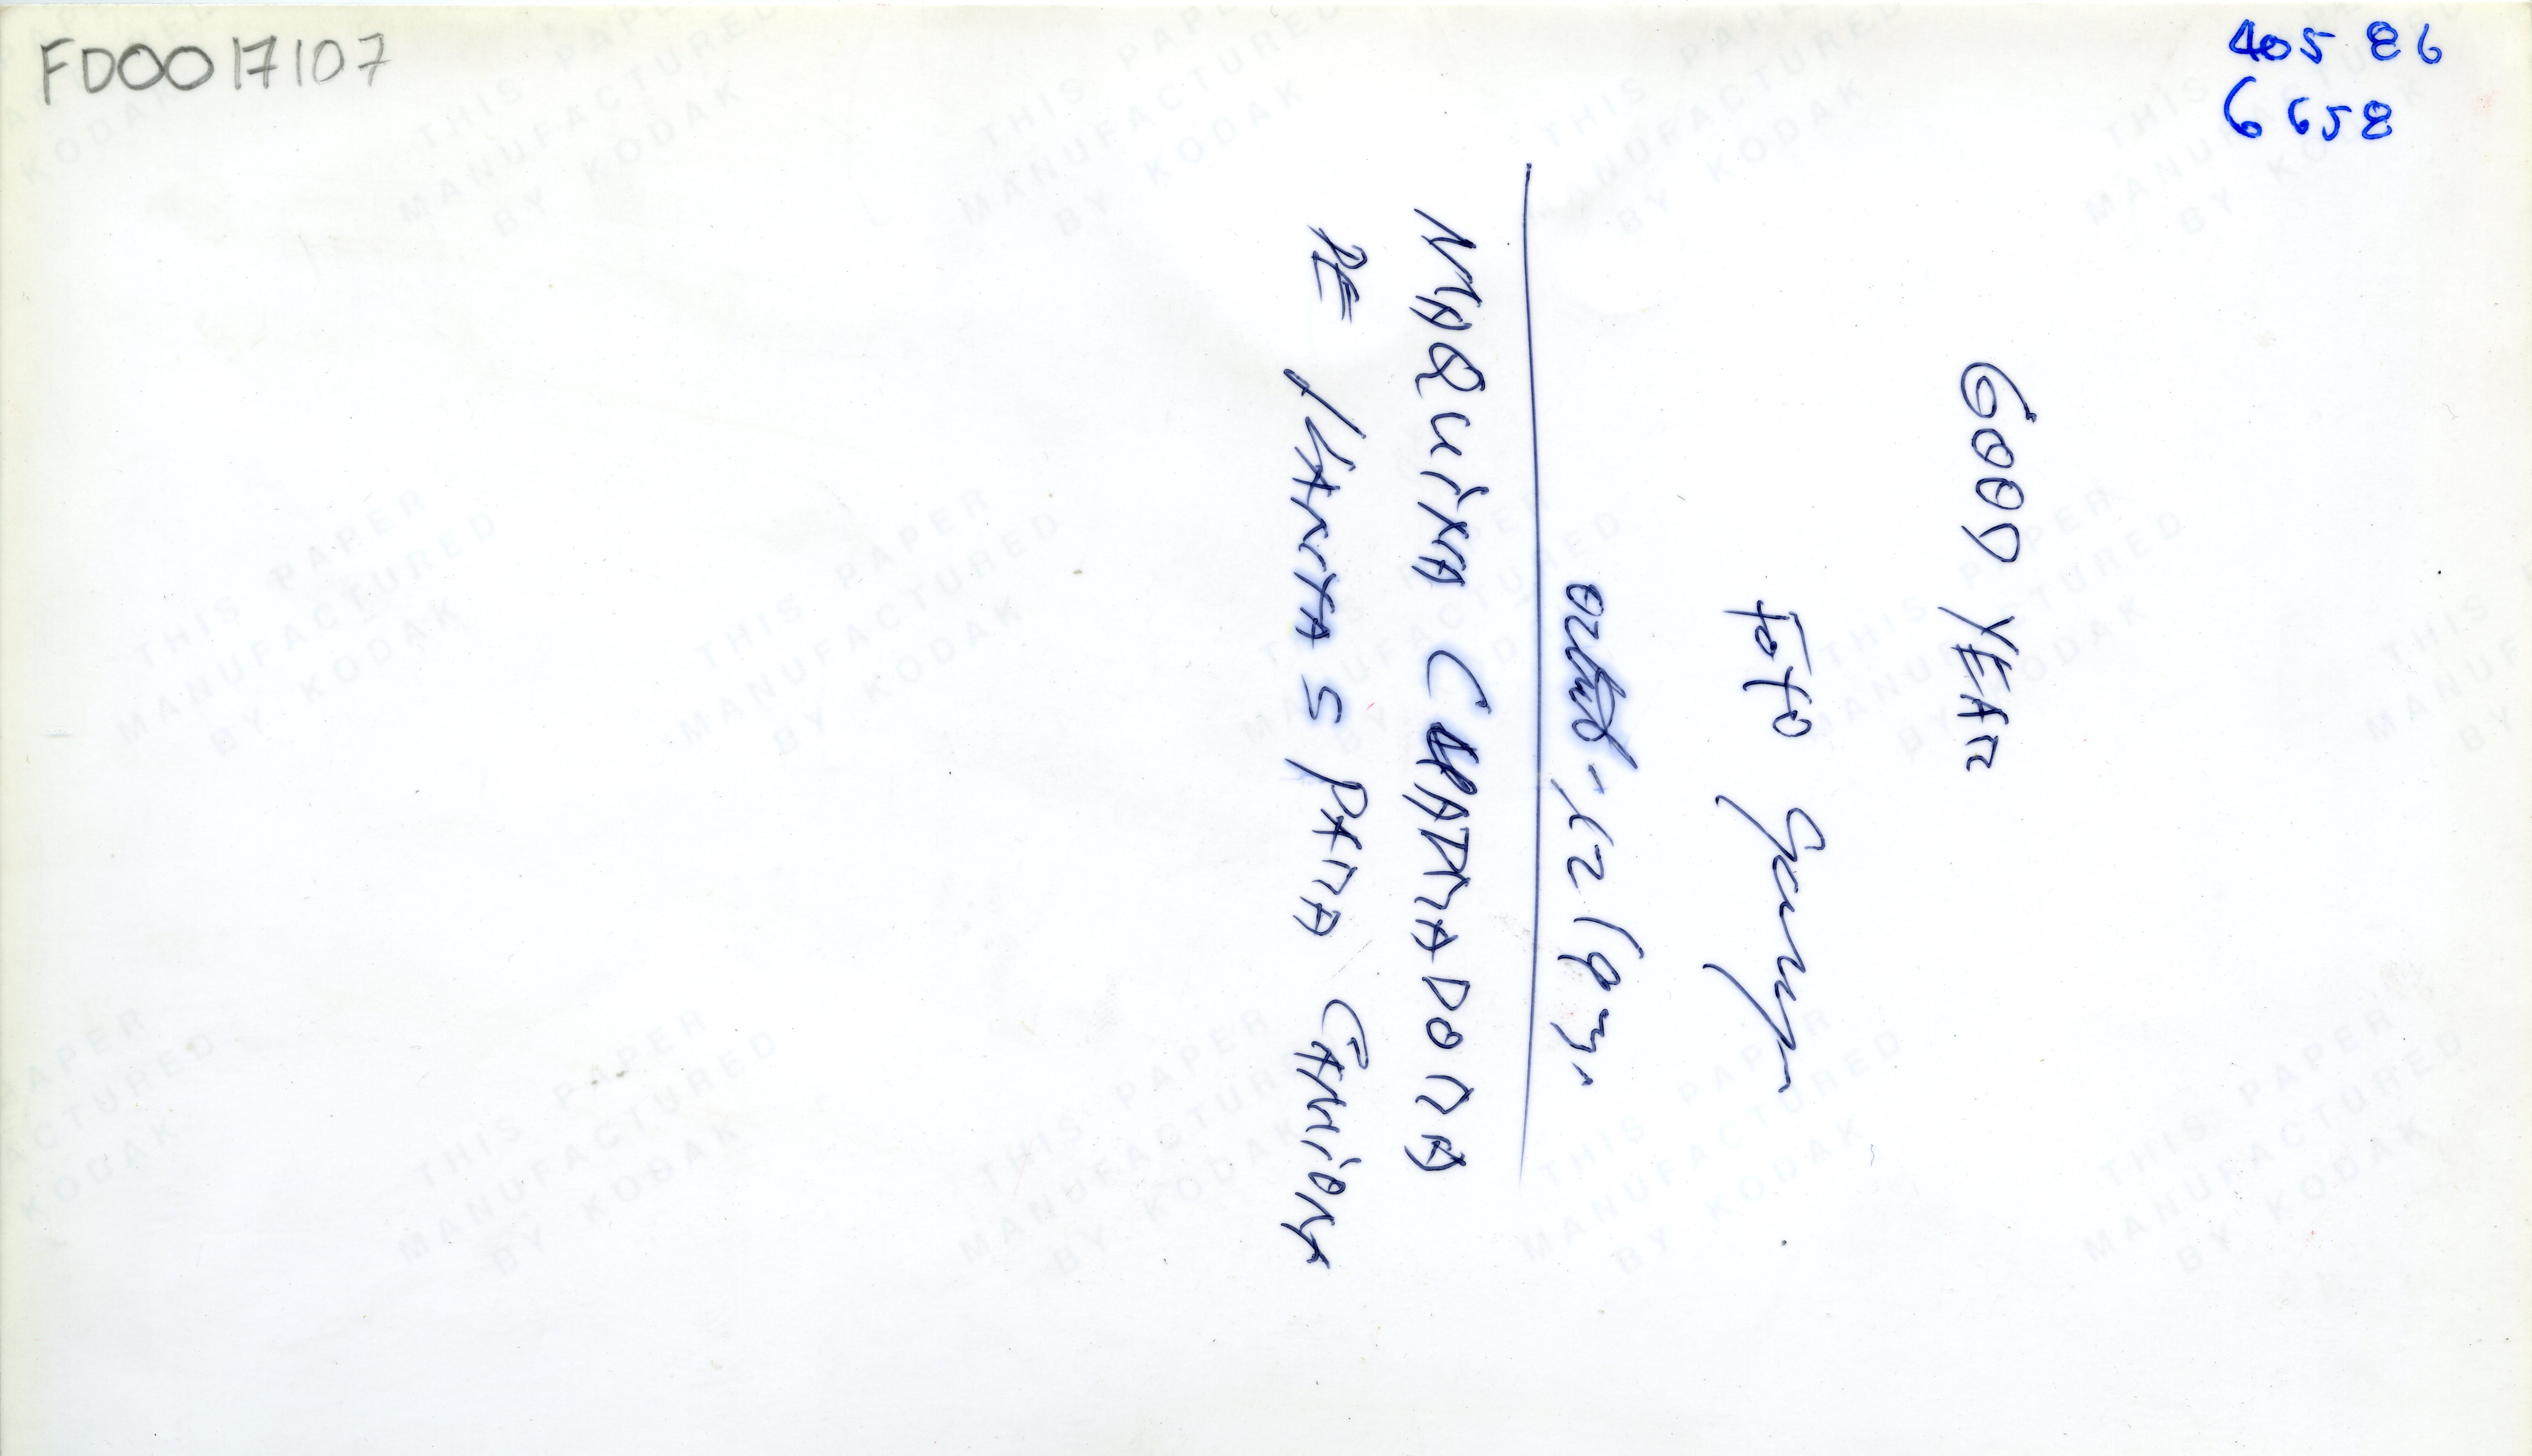 FD0017107
405 86
6 658
GOOD YEAR
FOTO
octubre - 12 / 93.
MAQUINA CUADRADORA
DE LLANTAS PARA CAMION
THIS PAPER
MANUFACTURED
BY KODAK